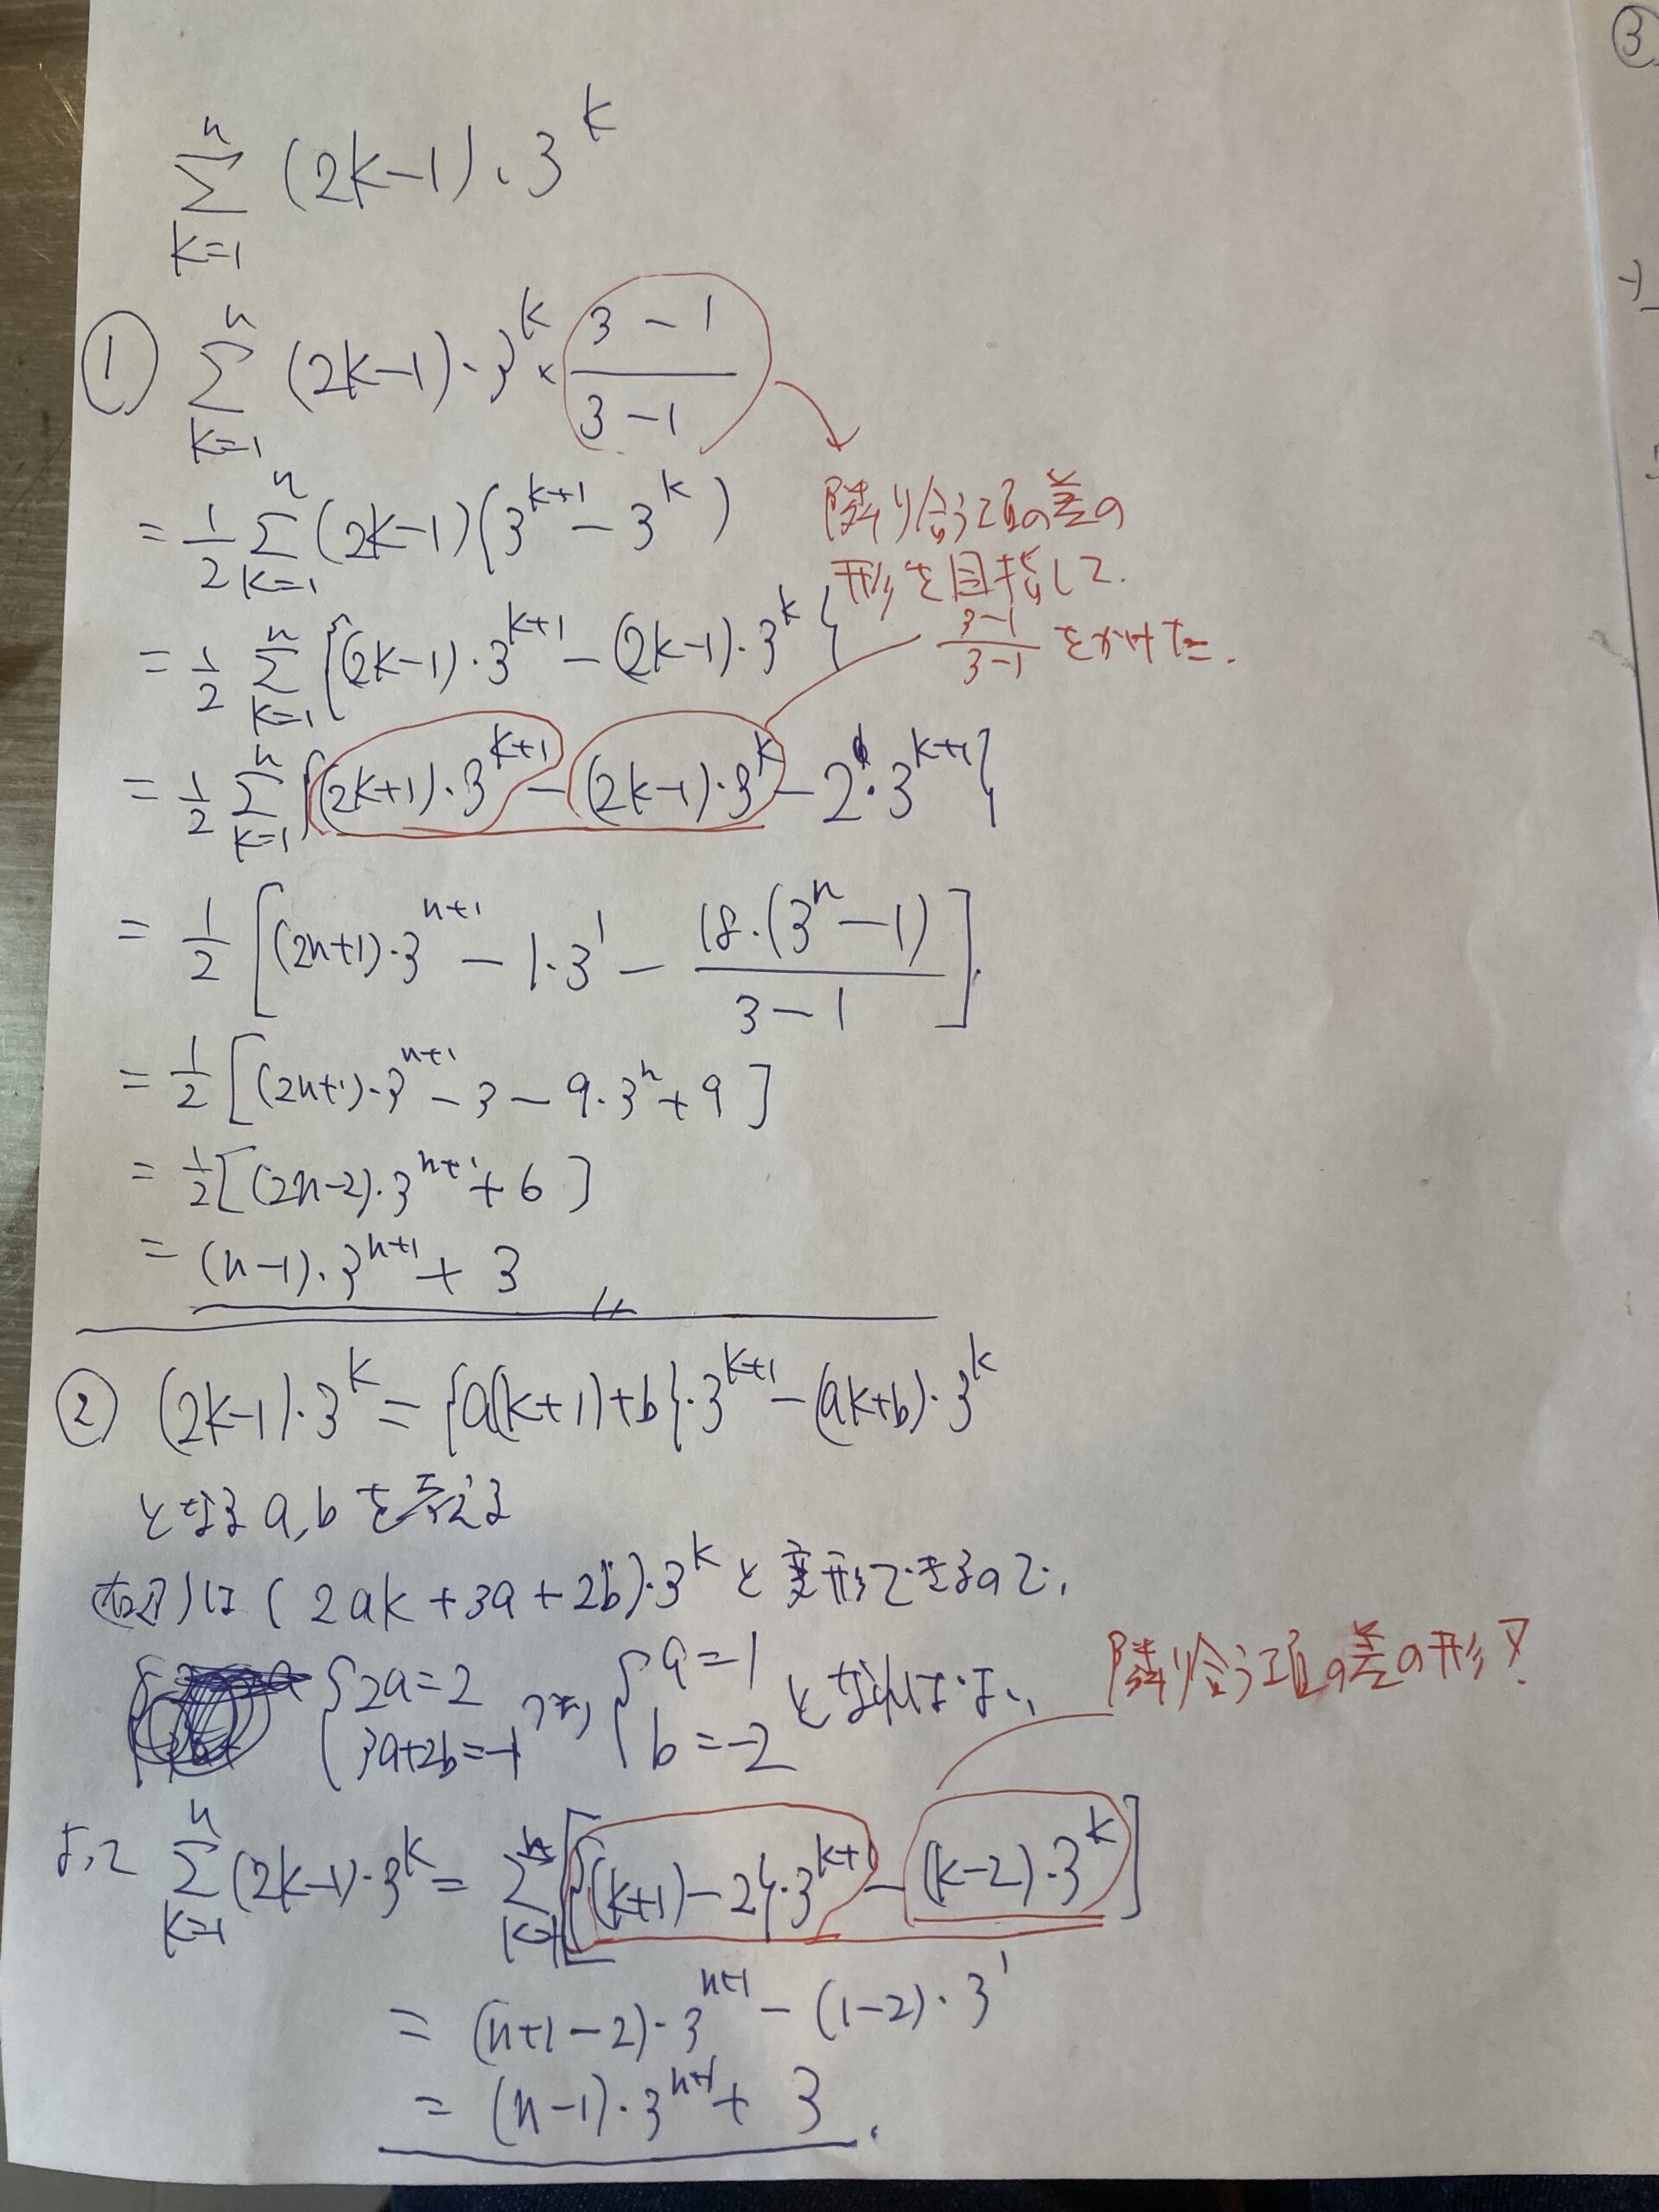 ③
n
Σ (2k-1)・3^k
k=1
① n
Σ (2k-1)・3^k × (3-1)/(3-1)
k=1
隣り合う項の差の
形を目指して.
(3-1)/(3-1) をかけた.
= 1/2 Σ_{k=1}^{n} (2k-1)(3^{k+1} - 3^k)
= 1/2 Σ_{k=1}^{n} {(2k-1)・3^{k+1} - (2k-1)・3^k}
= 1/2 Σ_{k=1}^{n} {(2k+1)・3^{k+1} - (2k-1)・3^k - 2・3^{k+1}}
= 1/2 [(2n+1)・3^{n+1} - 1・3^1 - 18・(3^n-1)/(3-1)].
= 1/2 [(2n+1)・3^{n+1} - 3 - 9・3^n + 9]
= 1/2 [(2n-2)・3^{n+1} + 6]
= (n-1)・3^{n+1} + 3
② (2k-1)・3^k = {a(k+1)+b}・3^{k+1} - (ak+b)・3^k
となる a,b を考える
(右辺)は (2ak+3a+2b)・3^k と変形できるので,
{2a=2 {a=1
{3a+2b=-1 つまり {b=-2 となればよい,
隣り合う項の差の形!
よって Σ_{k=1}^{n} (2k-1)・3^k = Σ_{k=1}^{n} [{(k+1)-2}・3^{k+1} - (k-2)・3^k]
= (n+1-2)・3^{n+1} - (1-2)・3^1
= (n-1)・3^{n+1} + 3.